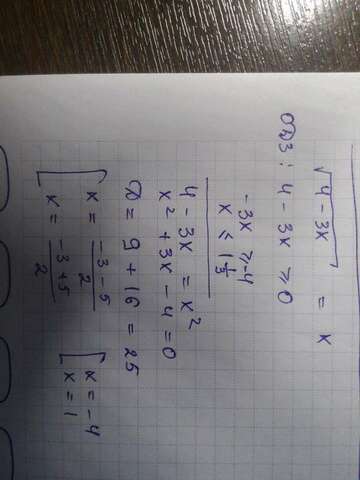 √4 - 3x = x
ОДЗ: 4 - 3x ≥ 0
-3x ≥ -4
x ≤ 1 1/3
4 - 3x = x²
x² + 3x - 4 = 0
D = 9 + 16 = 25
[ x = (-3 - 5)/2 [ x = -4
x = (-3 + 5)/2 x = 1